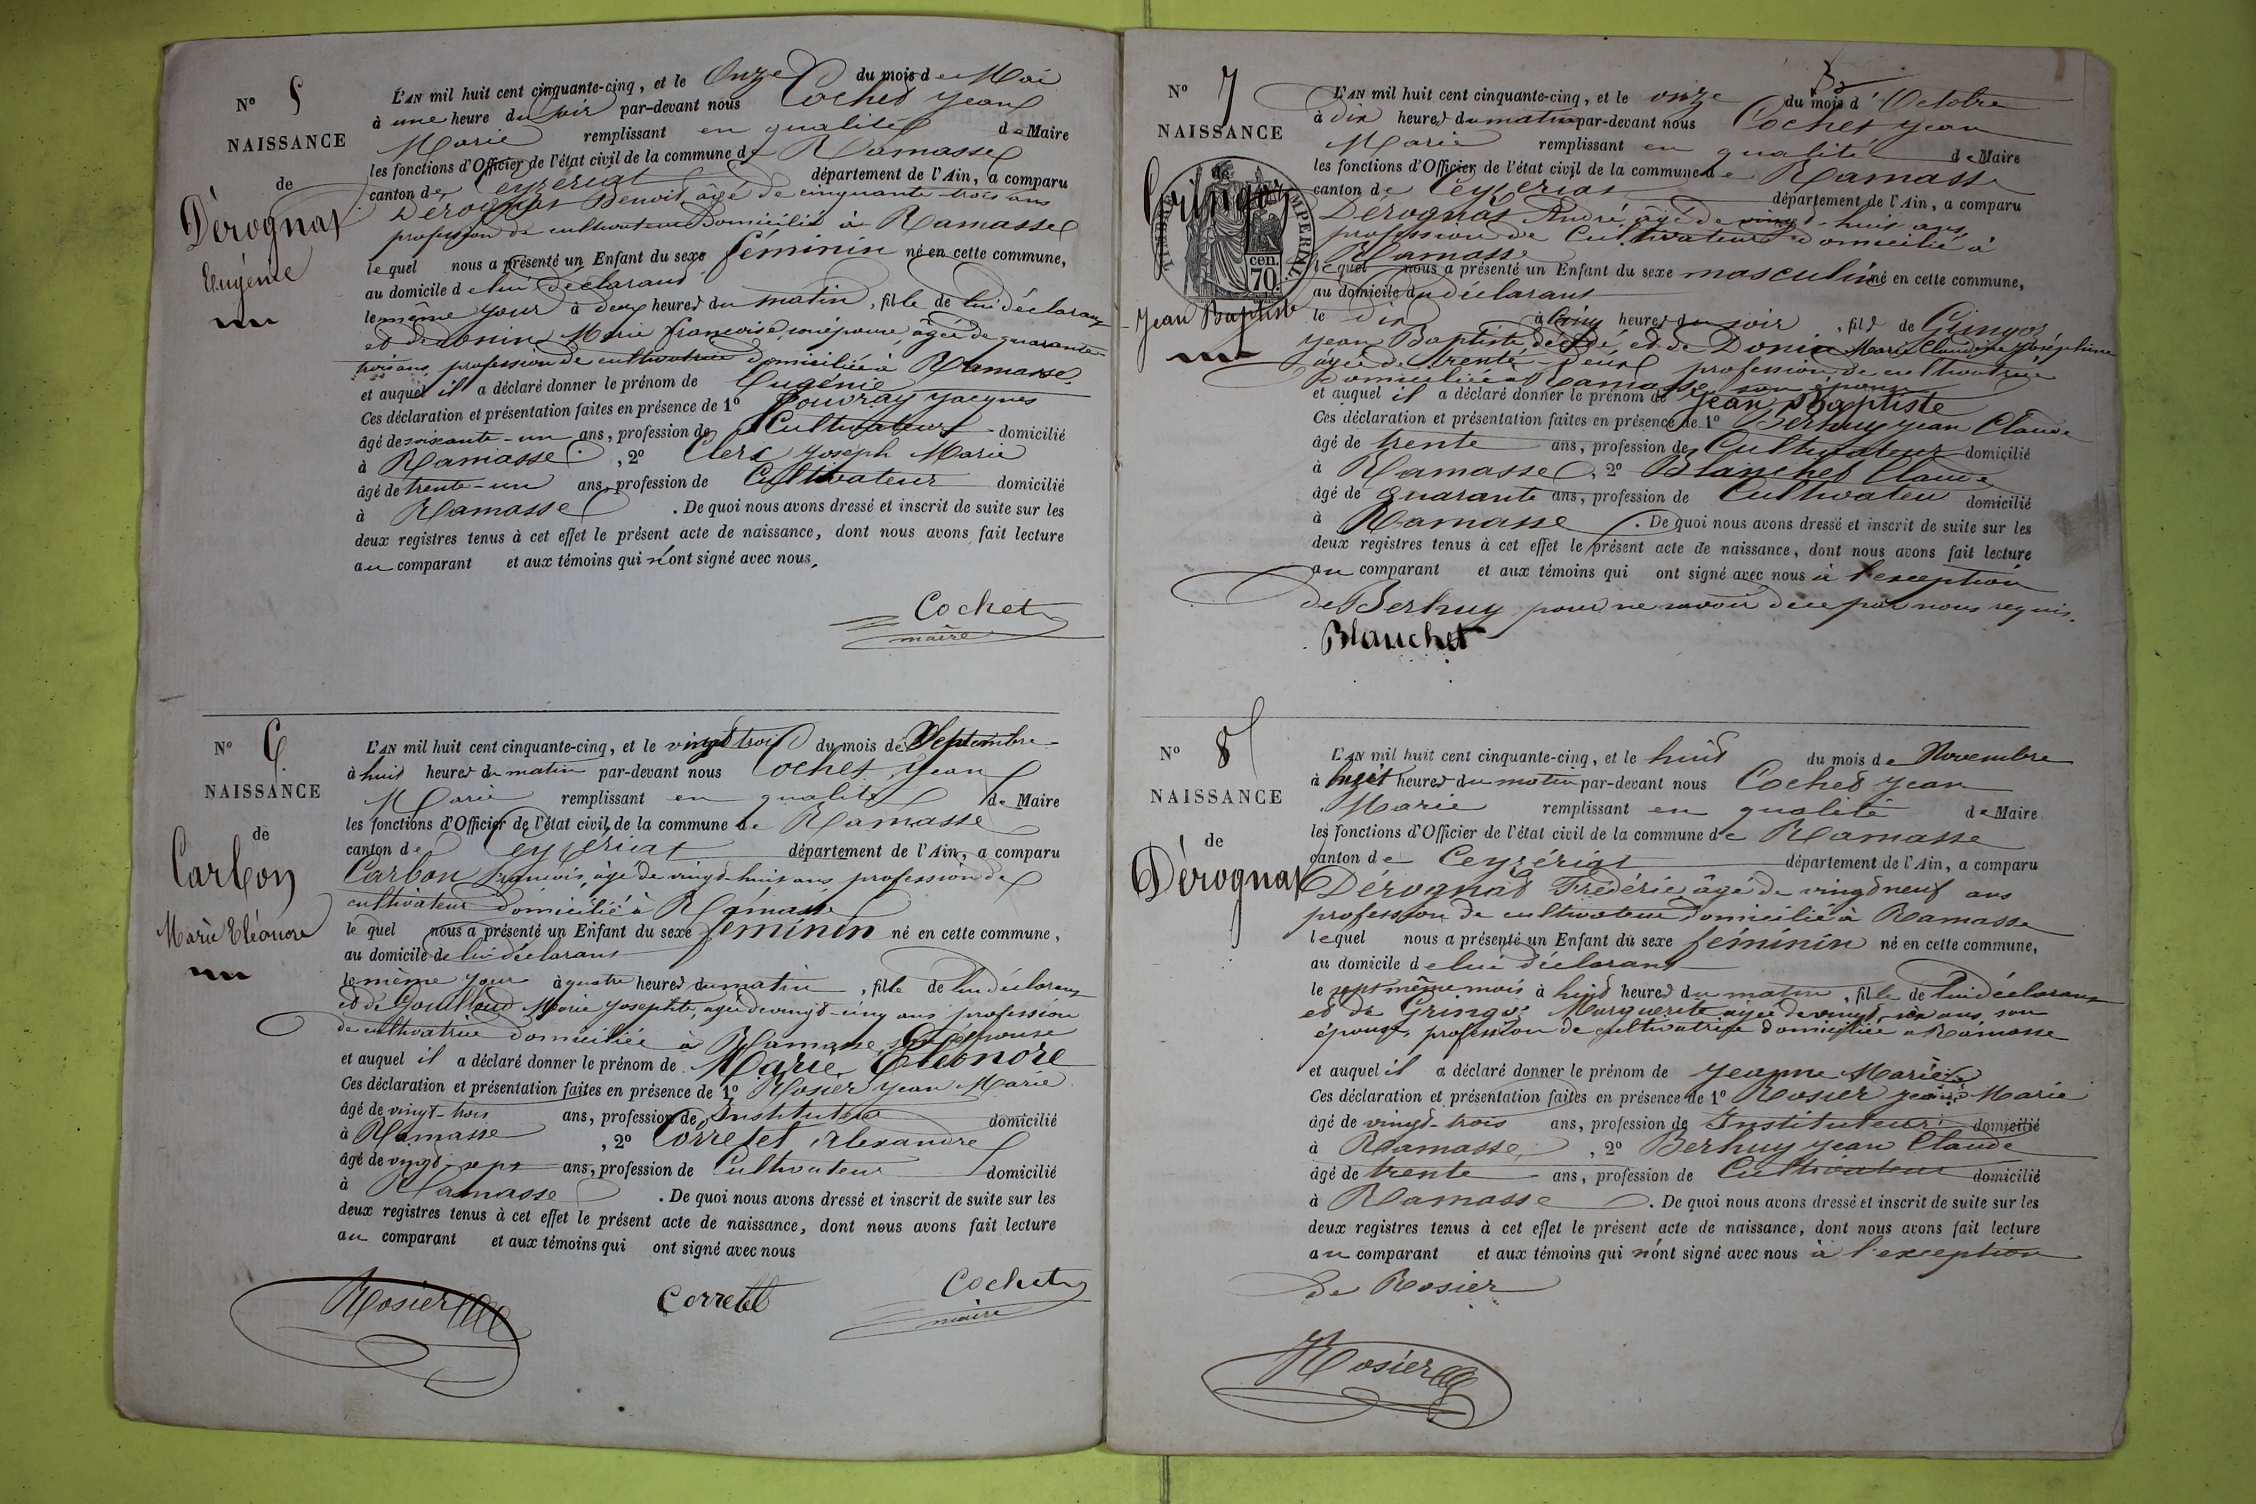 N° 5
NAISSANCE
de
Dérognat
Eugénie
L'AN mil huit cent cinquante-cinq, et le Onze du mois de Mai
à une heure du soir par-devant nous Cochet Jean
Marie remplissant en qualité de Maire
les fonctions d'Officier de l'état civil de la commune de Ramasse
canton de Ceyzériat département de l'Ain, a comparu
Dérognat Benoit, âgé de cinquante-trois ans
profession de cultivateur domicilié à Ramasse
lequel nous a présenté un Enfant du sexe féminin né en cette commune,
au domicile de lui déclarant
le même jour à deux heures du matin, fille de lui déclarant
et de Marie françoise, son épouse, âgée de quarante
trois ans, profession de cultivatrice domiciliée à Ramasse.
et auquel il a déclaré donner le prénom de Eugénie
Ces déclaration et présentation faites en présence de 1° Jacques
âgé de soixante-un ans, profession de Cultivateur domicilié
à Ramasse, 2° Clerc Joseph Marie
âgé de trente-un ans, profession de Cultivateur domicilié
à Ramasse. De quoi nous avons dressé et inscrit de suite sur les
deux registres tenus à cet effet le présent acte de naissance, dont nous avons fait lecture
au comparant et aux témoins qui n'ont signé avec nous.
Cochet
maire
N° 6
NAISSANCE
de
Carbon
Marie Eléonore
L'AN mil huit cent cinquante-cinq, et le vingt trois du mois de Septembre
à huit heures du matin par-devant nous Cochet Jean
Marie remplissant en qualité de Maire
les fonctions d'Officier de l'état civil de la commune de Ramasse
canton de Ceyzériat département de l'Ain, a comparu
Carbon François, âgé de vingt huit ans profession de
cultivateur domicilié à Ramasse
lequel nous a présenté un Enfant du sexe féminin né en cette commune,
au domicile de lui déclarant
le même jour à quatre heures du matin, fille de lui déclarant
et de Marie Josephte, agée de vingt-cinq ans profession
de cultivatrice domiciliée à Ramasse, son épouse
et auquel il a déclaré donner le prénom de Marie Eléonore
Ces déclaration et présentation faites en présence de 1° Rosier Jean Marie
âgé de vingt-trois ans, profession de Instituteur domicilié
à Ramasse, 2° Corretet Alexandre
âgé de vingt-sept ans, profession de Cultivateur domicilié
à Ramasse. De quoi nous avons dressé et inscrit de suite sur les
deux registres tenus à cet effet le présent acte de naissance, dont nous avons fait lecture
au comparant et aux témoins qui ont signé avec nous
Rosier Corretet Cochet
maire
N° 7
NAISSANCE
de
Gringoz
TIMBRE IMPERIAL
cen.
70
Jean Baptiste
L'AN mil huit cent cinquante-cinq, et le onze du mois d'Octobre
à dix heures du matin par-devant nous Cochet Jean
Marie remplissant en qualité de Maire
les fonctions d'Officier de l'état civil de la commune de Ramasse
canton de Ceyzériat département de l'Ain, a comparu
Dérognat André, âgé de vingt-huit ans,
profession de Cultivateur domicilié à
Ramasse
lequel nous a présenté un Enfant du sexe masculin né en cette commune,
au domicile du déclarant
le dix à cinq heures du soir, fils de Gringoz
Jean Baptiste décédé, et de Donin Marie Claudine Joséphine
agée de trente-deux profession de cultivatrice
domiciliée à Ramasse, son épouse
et auquel il a déclaré donner le prénom de Jean Baptiste
Ces déclaration et présentation faites en présence de 1° Berhuy Jean Claude
âgé de trente ans, profession de Cultivateur domicilié
à Ramasse, 2° Blanchet Claude
âgé de quarante ans, profession de Cultivateur domicilié
à Ramasse. De quoi nous avons dressé et inscrit de suite sur les
deux registres tenus à cet effet le présent acte de naissance, dont nous avons fait lecture
au comparant et aux témoins qui ont signé avec nous à l'exception
de Berhuy pour ne savoir de ce par nous requis.
Blanchet
N° 8
NAISSANCE
de
Dérognat
L'AN mil huit cent cinquante-cinq, et le huit du mois de Novembre
à huit heures du matin par-devant nous Cochet Jean
Marie remplissant en qualité de Maire
les fonctions d'Officier de l'état civil de la commune de Ramasse
canton de Ceyzériat département de l'Ain, a comparu
Dérognat Frédéric âgé de vingt neuf ans
profession de cultivateur domicilié à Ramasse
lequel nous a présenté un Enfant du sexe féminin né en cette commune,
au domicile de lui déclarant
le sept même mois à huit heures du matin, fille de lui déclarant
et de Gringoz Marguerite agée de vingt six ans, son
épouse, profession de cultivatrice domiciliée à Ramasse
et auquel il a déclaré donner le prénom de Jeanne Marie
Ces déclaration et présentation faites en présence de 1° Rosier Jean Marie
âgé de vingt-trois ans, profession de Instituteur domicilié
à Ramasse, 2° Berhuy Jean Claude
âgé de trente ans, profession de Cultivateur domicilié
à Ramasse. De quoi nous avons dressé et inscrit de suite sur les
deux registres tenus à cet effet le présent acte de naissance, dont nous avons fait lecture
au comparant et aux témoins qui n'ont signé avec nous à l'exception
de Rosier
Rosier